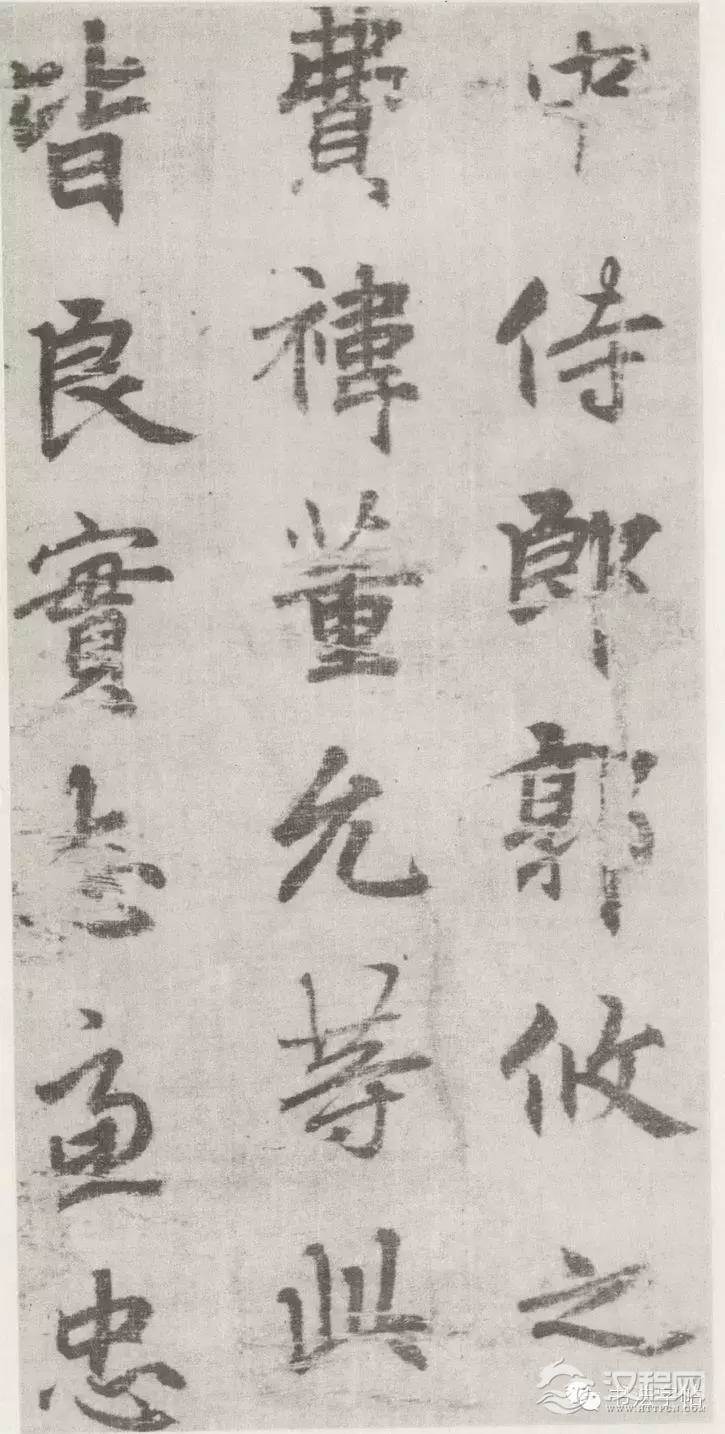 中侍郎郭攸之
費禕董允等此
皆良實志慮忠
汉程网
WWW.HTTPCN.COM